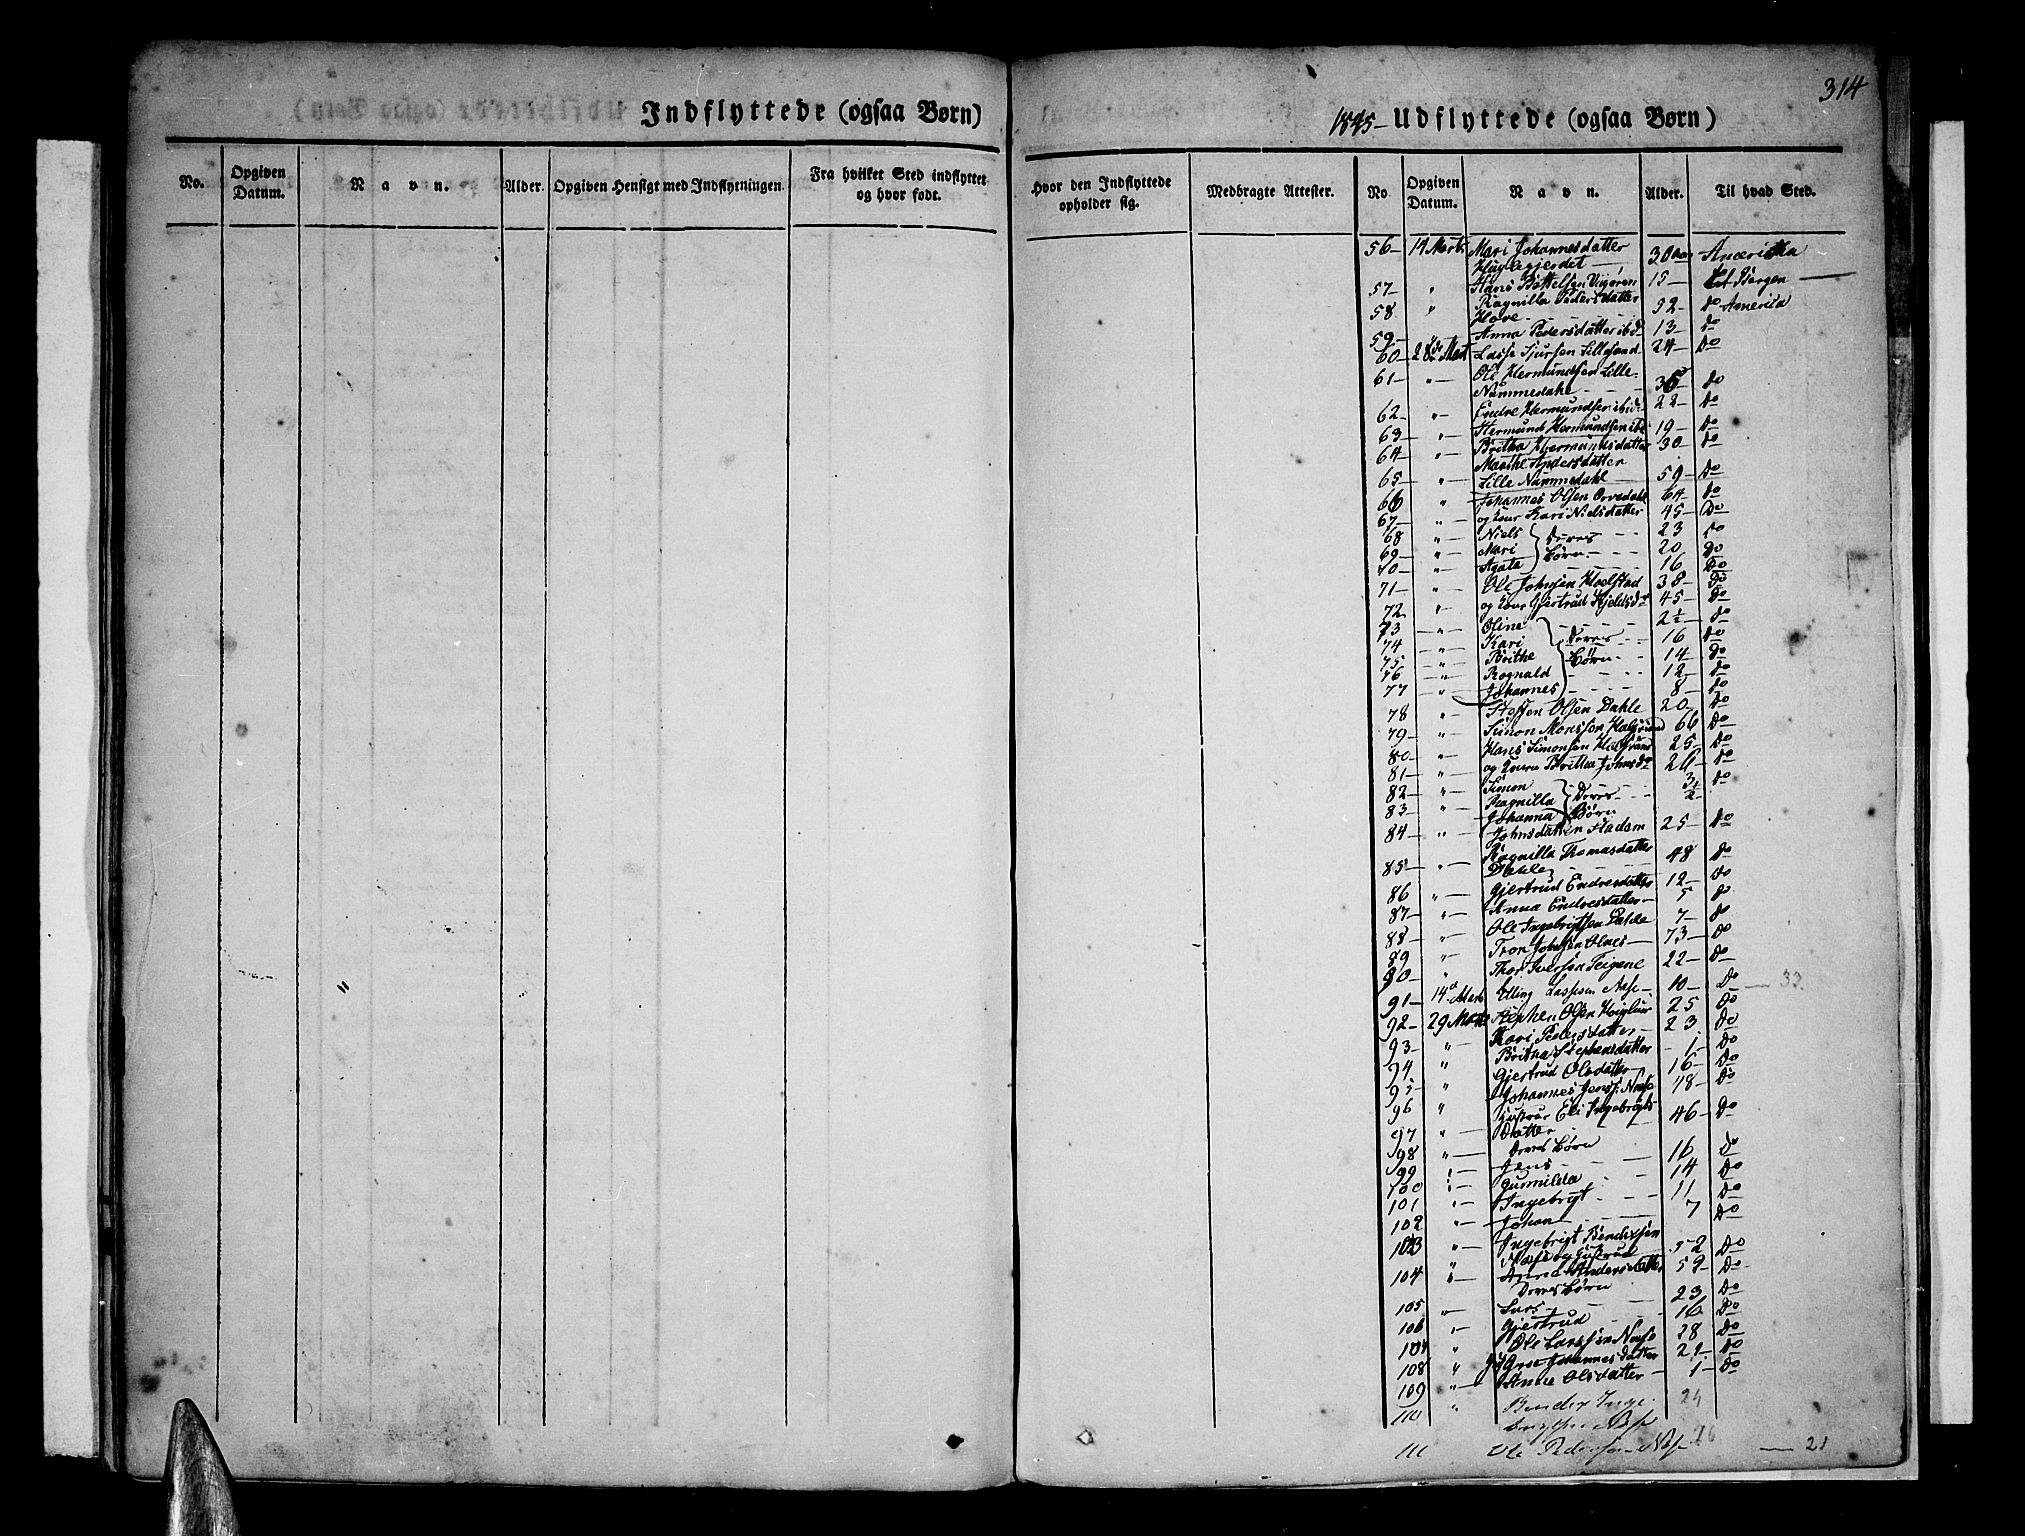 314
Indflyttede (ogsaa Børn)
1845 - Udflyttede (ogsaa Børn)
No. Opgiven Datum. Navn. Alder. Opgiven Hensigt med Indflytningen. Fra hvilket Sted indflyttet og hvor født.
Hvor den Indflyttede opholder sig. Medbragte Attester. No Opgiven Datum. Navn. Alder. Til hvad Sted.
56 - 14 Marts Mari Johannesdatter 30 Aar Amerikka
Huglegjerdet
57 - " Hans Bottelsen 15 - Bergen
58 " Ragnilla Pedersdatter 52 - Do Amerika
Hove
59 - Anna Pedersdatter ibd - 13 - Do
60 - 28de Mart Lasse Sjursen Lillesand 24 - Do
61 - " - Ole Hermundsen Lille-
Nummedahl 36 - Do
62 - " - Endre Hermundsen ibid - 22 - Do
63 - " - Hermund Hermundsen ibd 19 - Do
64 - " - Britha Hermundsdatter 30 Do
Marthe Andersdatter
65 - " - Lille Nummedahl 59 - Do
66 " Johannes Olsen Orvedahl 64 - Do
67 - " - og Kone Kari Nielsdatter 45 - Do
68 " - Niels } Deres 23 Do
69 - " - Mari } Børn 20 Do
70 - " - Agata } 16 Do
71 - " - Ole Johnsen Hoelstad 38 - Do
72 " - og Kone Gjertrud Kjeldsdr 45 - Do
73 - " - Oline 2½ - Do
74 - " - Kari } Deres 16 Do
75 - " - Brithe } Børn 14 - Do
76 - " - Rognald 12 - Do
77 - " - Johannes 8 - Do
78 " - Steffen Olsen Dahle 20 - Do
79 - " - Simon Monsson 66 Do
80 - " - Hans Simonsen 25 - Do
81 - " - og Kone Britha Johnsdr 26 - Do
82 - " - Simon } Deres 3 Do
83 - " - Ragnilla } Børn
Johanna
84 - " - Johnsdatter Fladem 25 - Do
Ragnilla Thomasdatter
85 - " - Dahle 48 Do
86 " - Gjertrud Endresdatter 12 - Do
87 - " - Anna Endresdatter - 5 Do
88 - " - Ole Ingebrigtsen Dahle 7 - Do
89 " Tron Johnsen Olnes 73 - Do
90 - " Thor Iversen Teigene 22 - Do
91 - 14de Marts Elling Lassesen Næse - 10 - Do 33.
92 - 29 Marts Stephen Olsen 25 Do
93 - " - Kari Pedersdatter - 23 Do
94 " Britha Stephensdatter 1 - Do
95 - " Gjertrud Olsdatter - 16 - Do
96 " Johannes Jens: Næse 48 - Do
97 " Hustrue Eli Ingebrigts- 46 - Do
Datter
98 " Deres Børn
99 " Jens 16 Do
100 " Gunnilda 14 Do
101 " - Ingebrigt 11 Do
102 " - Johan 7 Do
103 " - Ingebrigt Bendixsen
Næse og Hustrue 52 Do
104 " - Anna Andersdatter 59 Do
Deres Børn
105 " - Lars 23 Do
106 " - Gjertrud 16 Do
107 " Ole Larssen Næse 28 Do
108 " Johannesdatter 22 - Do
109 " - Anne Olsdatter 1 - Do
110 " Bendix Inge- 24
brigtsen Næse
111 Ole Pedersen Næse 16 21